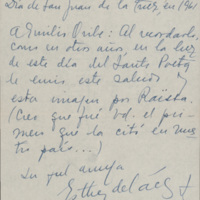 Día de San Juan de la Cruz, en 196
A Emilio Oribe: Al recordarlo,
como en otros años, en la luz
de este día del Santo Poeta
le envío este saludo y
esta imagen por Raïssa.
(Creo que fué Vd. el pri-
mero que la citó en nues-
tro país...)
Su fiel amiga
Esther de Cáceres